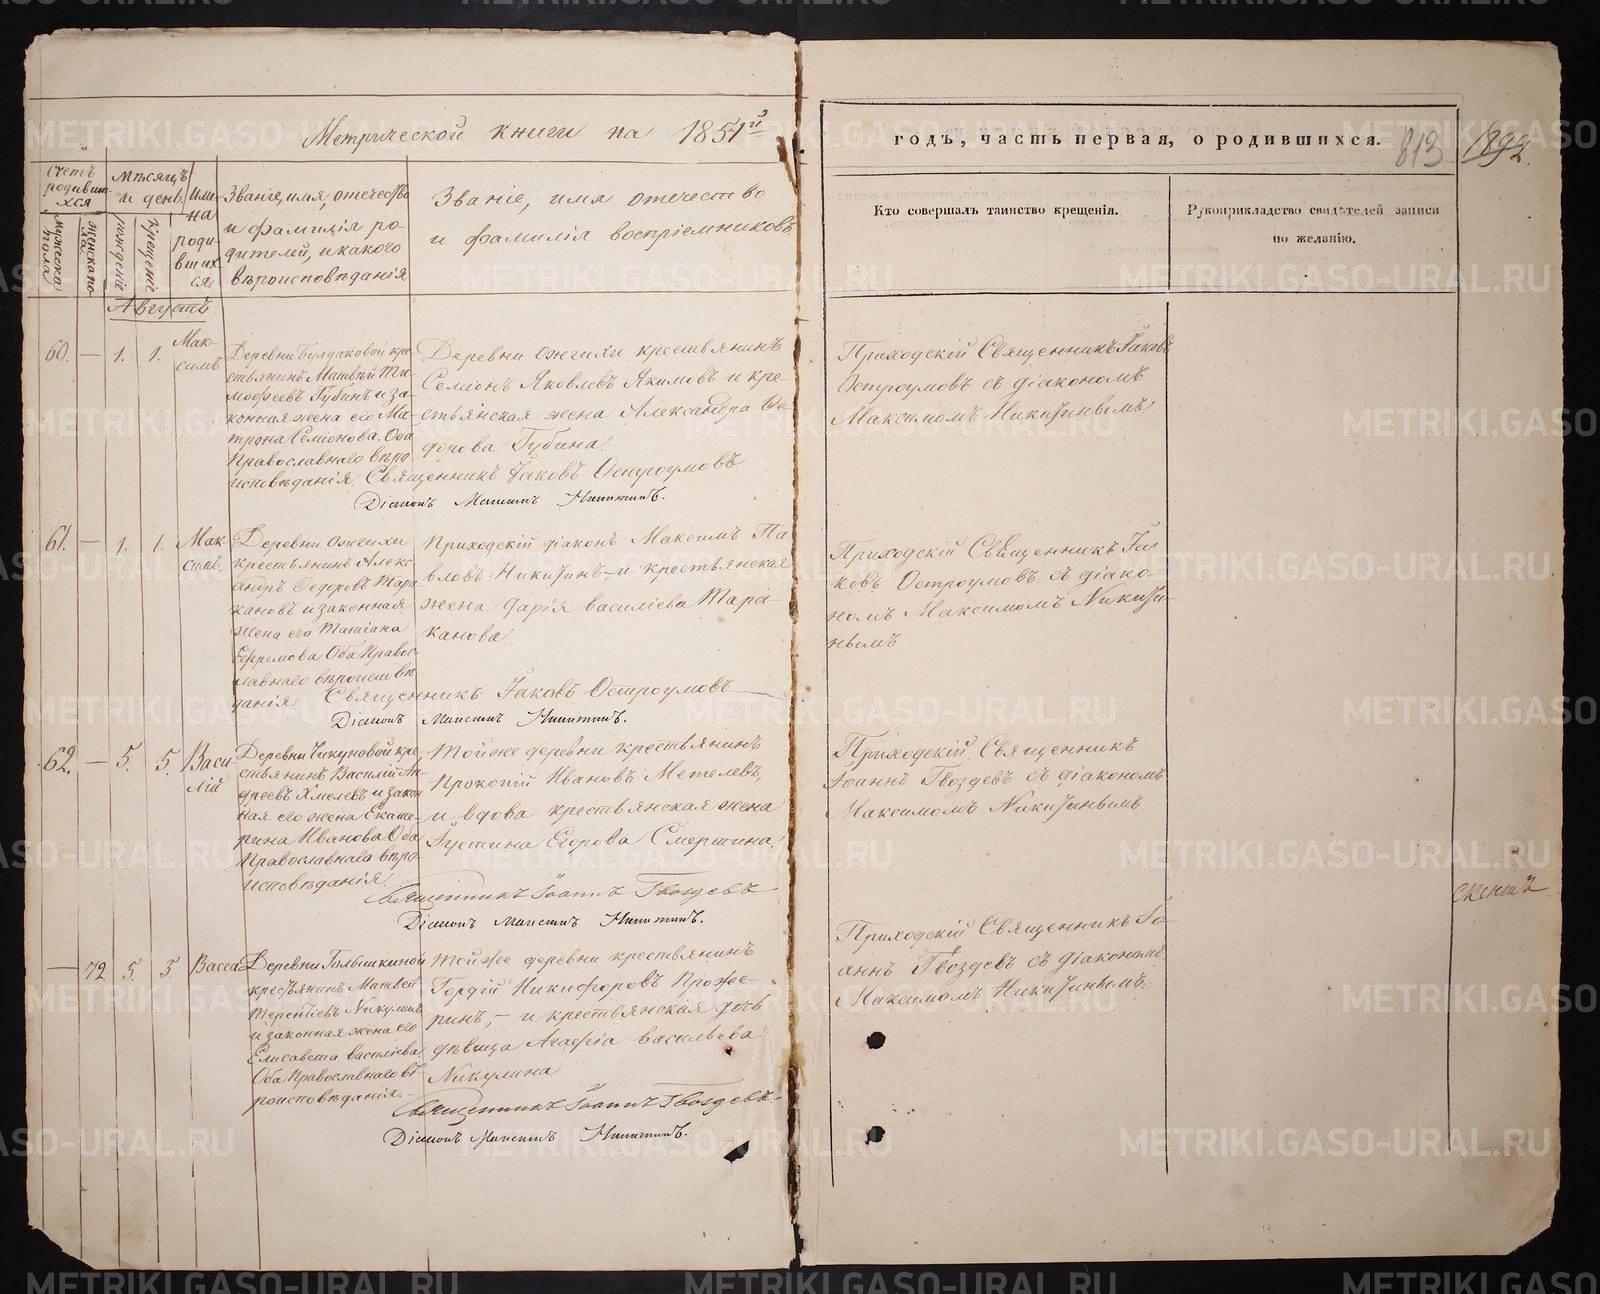 Метрической книги на 1851й
годъ, часть первая, о родившихся.
813
1892.
Счетъ родившихся
Мѣсяцъ и день
Имина родившихся
Званіе, имя, отечество и фамилія родителей, и какого вѣроисповѣданія
Званіе, имя отечество и фамилія воспріемниковъ
Кто совершалъ таинство крещенія.
Рукоприкладство свидѣтелей записи по желанію.
мужеска пола
женска по ла
рожденіе
крещеніе
Августъ
60. — 1. 1.
Мак-
симъ
Деревни Булдаковой кре
стьянинъ Матвѣй Ти-
мофеевъ Губинъ и за-
конная жена его Ма-
трона Семіонова. Оба
Православнаго вѣро
исповѣданія
Деревни Ожгихи крестьянинъ
Семіонъ Яковлевъ Якимовъ и кре-
стьянская жена Александра Ѳе-
дорова Губина
Священникъ Іаковъ Остроумовъ
Діаконъ Максимъ Никитинъ.
Приходскій Священникъ Іаковъ
Остроумовъ съ діакономъ
Максимомъ Никитинымъ
61. — 1. 1.
Мак-
симъ.
Деревни Ожгихи
крестьянинъ Алекс
андръ Ѳедоровъ Тара
кановъ и законная
жена его Татіана
Ефремова Оба Правос-
лавнаго вѣроисповѣ
данія
Приходскій діаконъ Максимъ Па
вловъ Никитинъ, и крестьянская
жена Дарія Василіева Тара-
канова
Священникъ Іаковъ Остроумовъ
Діаконъ Максимъ Никитинъ.
Приходскій Священникъ Іа-
ковъ Остроумовъ съ діако-
номъ Максимомъ Никити-
нымъ
62. — 5. 5.
Васи
лій
Деревни Чикуновой кре-
стьянинъ Василій Ан-
дреевъ Хмелевъ и закон
ная его жена Екате-
рина Иванова Оба
Православнаго вѣро
исповѣданія.
Тойже деревни крестьянинъ
Прокопій Ивановъ Метелевъ,
и вдова крестьянская жена
Іустина Егорова Смертина.
Священникъ Іоаннъ Гвоздевъ
Діаконъ Максимъ Никитинъ.
Приходскій Священникъ
Іоаннъ Гвоздевъ съ діакономъ
Максимомъ Никитинымъ
— 72 5. 5
Васса
Деревни Голышкиной
крестьянинъ Матвей
Терентіевъ Никулинъ
и законная жена его
Елисавета Василіева
Оба Православнаго вѣ-
роисповѣданія.
Тойже деревни крестьянинъ
Гордій Никифоровъ Проже-
ринъ, — и крестьянская дочь
дѣвица Агафія Васильева
Никулина
Священникъ Іоаннъ Гвоздевъ.
Діаконъ Максимъ Никитинъ.
Приходскій Священникъ Іо-
аннъ Гвоздевъ съ діакономъ
Максимомъ Никитинымъ.
METRIKI.GASO-URAL.RU